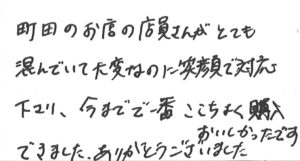 町田のお店の店員さんがとても
混んでいて大変なのに笑顔で対応
下さり、今までで一番ここちよく購入
できました。ありがとうございました
おいしかったです